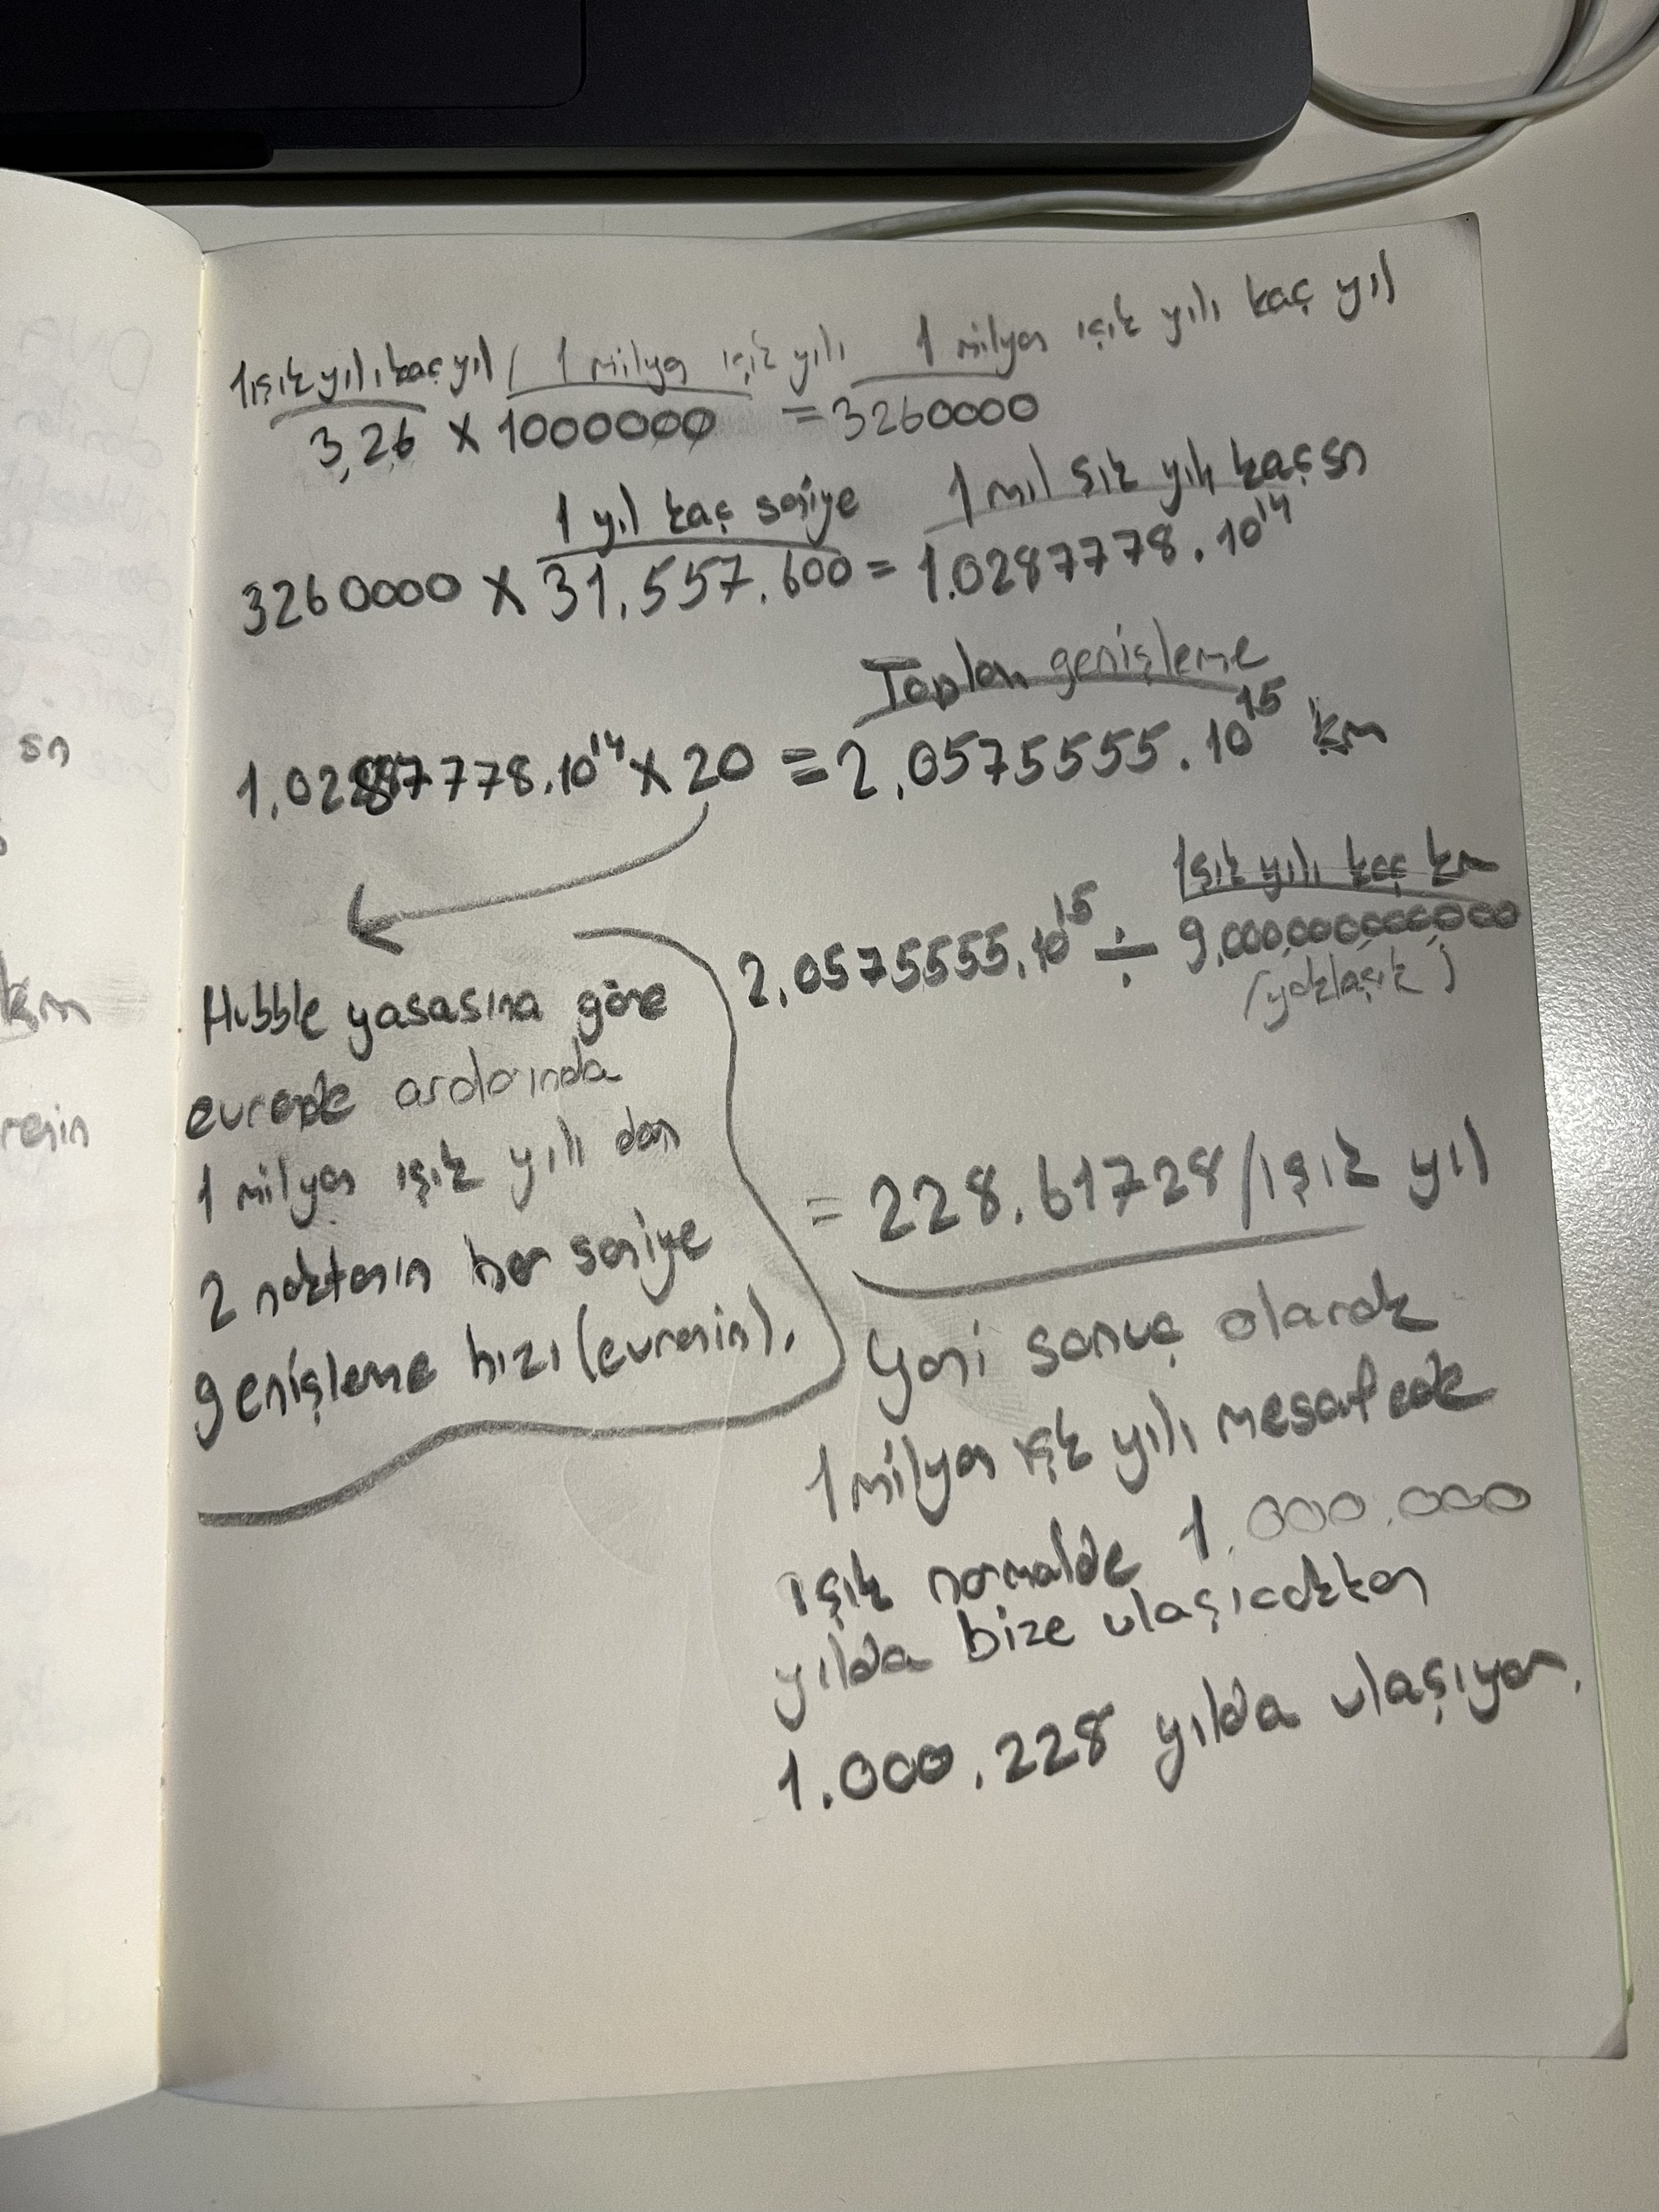 1 ışık yılı kaç yıl / 1 milyon ışık yılı 1 milyon ışık yılı kaç yıl
3,26 x 1000000 = 3260000
1 yıl kaç saniye 1 mil şık yılı kaç sn
3260000 x 31.557.600 = 1.0287778.10^14
Toplam genişleme
x 20 = 2.0575555.10^15 km
Işık yılı kaç km
2.0575555.10^15 ÷ 9,000,000000000
(yaklaşık)
Hubble yasasına göre
evrende aralarında
1 milyon ışık yılı olan
2 noktanın her saniye
genişleme hızı (evrenin).
= 228.61728 / ışık yıl
Yani sonuç olarak
1 milyon ışık yılı mesafedek
ışık normalde 1.000.000
yılda bize ulaşıcakken
1.000.228 yılda ulaşıyor.
sn
km